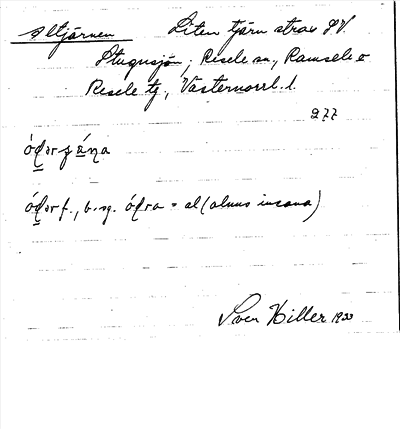 Altjärnen Liten tjärn strax SV.
Stugusjön; Resele sn, Ramsele o
Resele tg, Västernorrl. l.
277
f., b. sg. = al (alnus incana)
Sven Hiller 1933